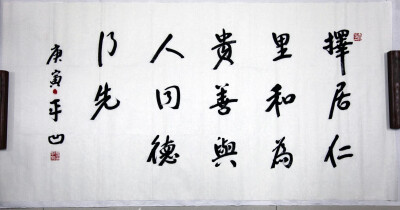 擇居仁
里和為
貴善與
人同德
乃先
庚寅平凹